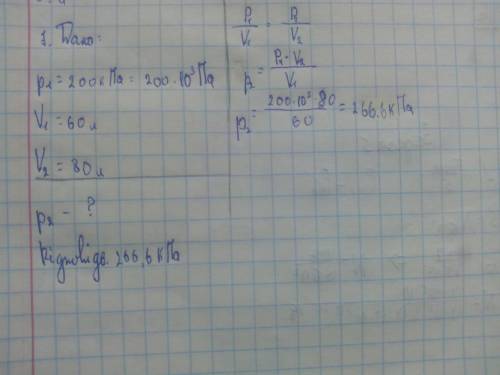 1. Дано:
p₁ = 200 кПа = 200·10³ Па
V₁ = 60 л
V₂ = 80 л
p₂ - ?
Відповідь. 266,6 кПа
P₁/V₁ = P₂/V₂
p₂ = P₁·V₂/V₁
p₂ = 200·10³·80/60 = 266,6 кПа